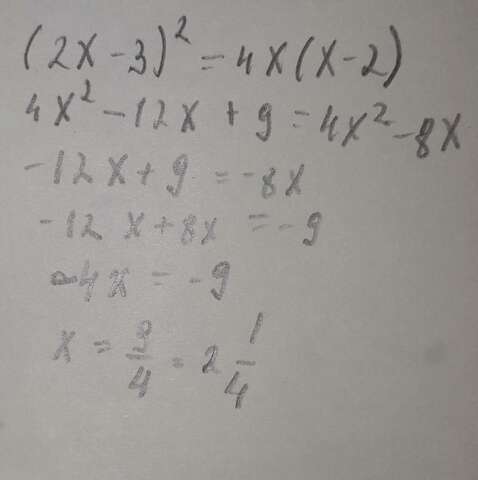 (2x-3)² = 4x(x-2)
4x² - 12x + 9 = 4x² - 8x
-12x + 9 = -8x
-12x + 8x = -9
-4x = -9
x = 9/4 = 2 1/4